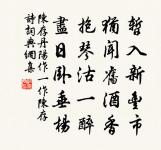 暫入新豐市
猶聞舊酒香
抱琴沽一醉
盡日臥垂楊
陳存丹陽作一作陳存
詩詞典網集